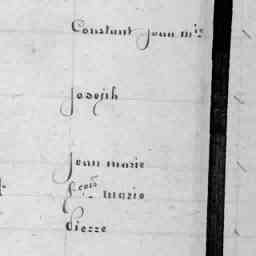 Constant jean mie
joseph
jean marie
fçois marie
pierre